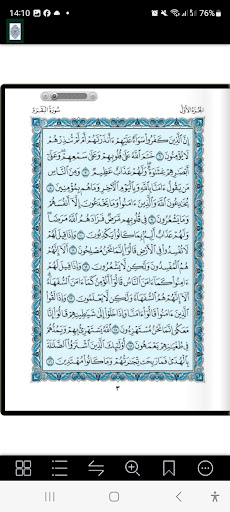 14:10
76%
سُورَةُ البَقَرَةِ
الجُزْءُ الأَوَّلُ
إِنَّ الَّذِينَ كَفَرُوا سَوَاءٌ عَلَيْهِمْ ءَأَنذَرْتَهُمْ أَمْ لَمْ تُنذِرْهُمْ
لَا يُؤْمِنُونَ ٦ خَتَمَ اللَّهُ عَلَى قُلُوبِهِمْ وَعَلَى سَمْعِهِمْ وَعَلَى
أَبْصَارِهِمْ غِشَاوَةٌ وَلَهُمْ عَذَابٌ عَظِيمٌ ٧ وَمِنَ النَّاسِ
مَن يَقُولُ ءَامَنَّا بِاللَّهِ وَبِالْيَوْمِ الْآخِرِ وَمَا هُم بِمُؤْمِنِينَ ٨
يُخَادِعُونَ اللَّهَ وَالَّذِينَ ءَامَنُوا وَمَا يَخْدَعُونَ إِلَّا أَنفُسَهُمْ
وَمَا يَشْعُرُونَ ٩ فِي قُلُوبِهِم مَّرَضٌ فَزَادَهُمُ اللَّهُ مَرَضًا
وَلَهُمْ عَذَابٌ أَلِيمٌ بِمَا كَانُوا يَكْذِبُونَ ١٠ وَإِذَا قِيلَ لَهُمْ
لَا تُفْسِدُوا فِي الْأَرْضِ قَالُوا إِنَّمَا نَحْنُ مُصْلِحُونَ ١١ أَلَا إِنَّهُمْ
هُمُ الْمُفْسِدُونَ وَلَكِن لَّا يَشْعُرُونَ ١٢ وَإِذَا قِيلَ لَهُمْ
ءَامِنُوا كَمَا ءَامَنَ النَّاسُ قَالُوا أَنُؤْمِنُ كَمَا ءَامَنَ السُّفَهَاءُ
أَلَا إِنَّهُمْ هُمُ السُّفَهَاءُ وَلَكِن لَّا يَعْلَمُونَ ١٣ وَإِذَا لَقُوا
الَّذِينَ ءَامَنُوا قَالُوا ءَامَنَّا وَإِذَا خَلَوْا إِلَى شَيَاطِينِهِمْ قَالُوا إِنَّا
مَعَكُمْ إِنَّمَا نَحْنُ مُسْتَهْزِءُونَ ١٤ اللَّهُ يَسْتَهْزِئُ بِهِمْ وَيَمُدُّهُمْ
فِي طُغْيَانِهِمْ يَعْمَهُونَ ١٥ أُولَئِكَ الَّذِينَ اشْتَرَوُا الضَّلَالَةَ
بِالْهُدَى فَمَا رَبِحَت تِّجَارَتُهُمْ وَمَا كَانُوا مُهْتَدِينَ ١٦
٣